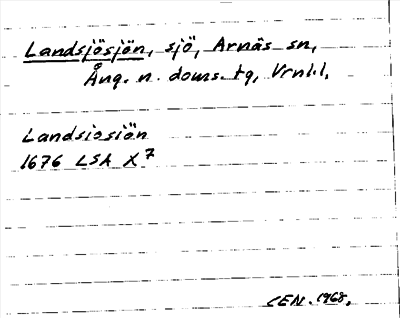 Landsjösjön, sjö, Arnäs sn,
Ång. n. doms. tg, Vrnl.l.
Landsiosiön
1676 LSA X 7
CEN. 1968.